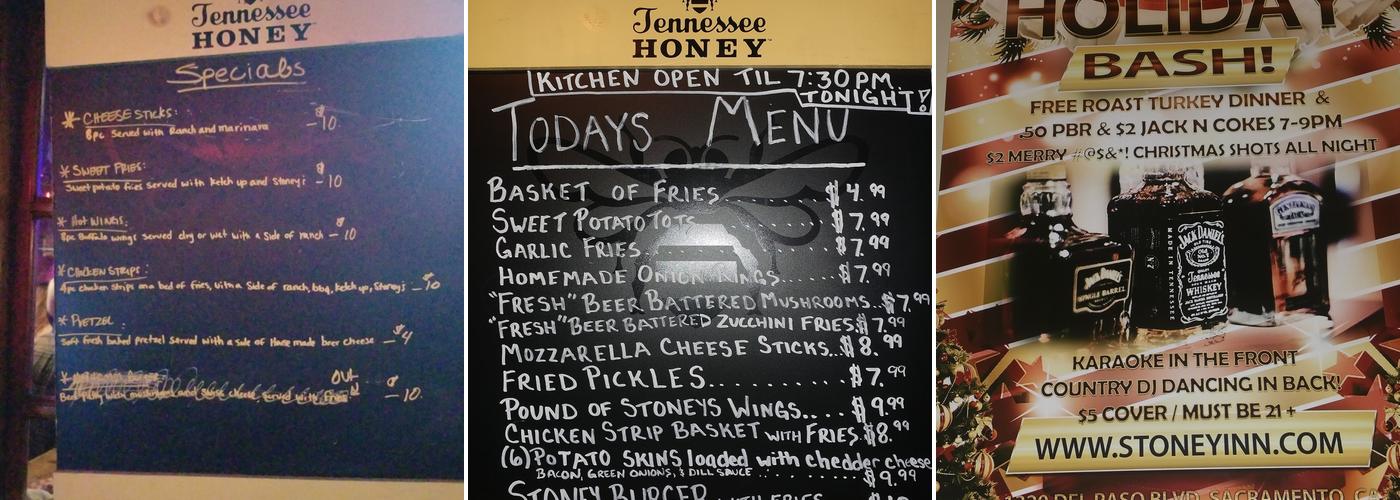 Tennessee
HONEY
Specials
* CHEESE STICKS: $
8pc served with Ranch and marinara - 10
* SWEET FRIES: $
Sweet potato fries served with ketch up and Stoney's - 10
* HOT WINGS: $
8pc Buffalo wings served dry or wet with a side of ranch - 10
* CHICKEN STRIPS: $
4pc chicken strips on a bed of fries, with a side of ranch, bbq, ketchup, Stoney's - 10
* PRETZEL $
Soft fresh baked pretzel served with a side of House made beer cheese - 4
OUT $
Beef patty with mustard and swiss cheese, served with fries - 10
Tennessee
HONEY
KITCHEN OPEN TIL 7:30PM
TONIGHT!
TODAYS MENU
BASKET OF FRIES....... $4.99
SWEET POTATO TOTS....... $7.99
GARLIC FRIES....... $7.99
HOMEMADE ONION RINGS..... $7.99
"FRESH" BEER BATTERED MUSHROOMS..$7.99
"FRESH" BEER BATTERED ZUCCHINI FRIES.$7.99
MOZZARELLA CHEESE STICKS...$8.99
FRIED PICKLES.......... $7.99
POUND OF STONEYS WINGS.... $9.99
CHICKEN STRIP BASKET WITH FRIES.$8.99
(6) POTATO SKINS loaded with chedder cheese
BACON, GREEN ONIONS, & DILL SAUCE....... $9.99
STONEY BURGER WITH FRIES
HOLIDAY
BASH!
FREE ROAST TURKEY DINNER &
.50 PBR & $2 JACK N COKES 7-9PM
$2 MERRY #@$&*! CHRISTMAS SHOTS ALL NIGHT
JACK DANIEL'S
OLD TIME
No. 7
BRAND
Tennessee
WHISKEY
MADE IN TENNESSEE
SINGLE BARREL
KARAOKE IN THE FRONT
COUNTRY DJ DANCING IN BACK!
$5 COVER / MUST BE 21+
WWW.STONEYINN.COM
1320 DEL PASO BLVD, SACRAMENTO, CA